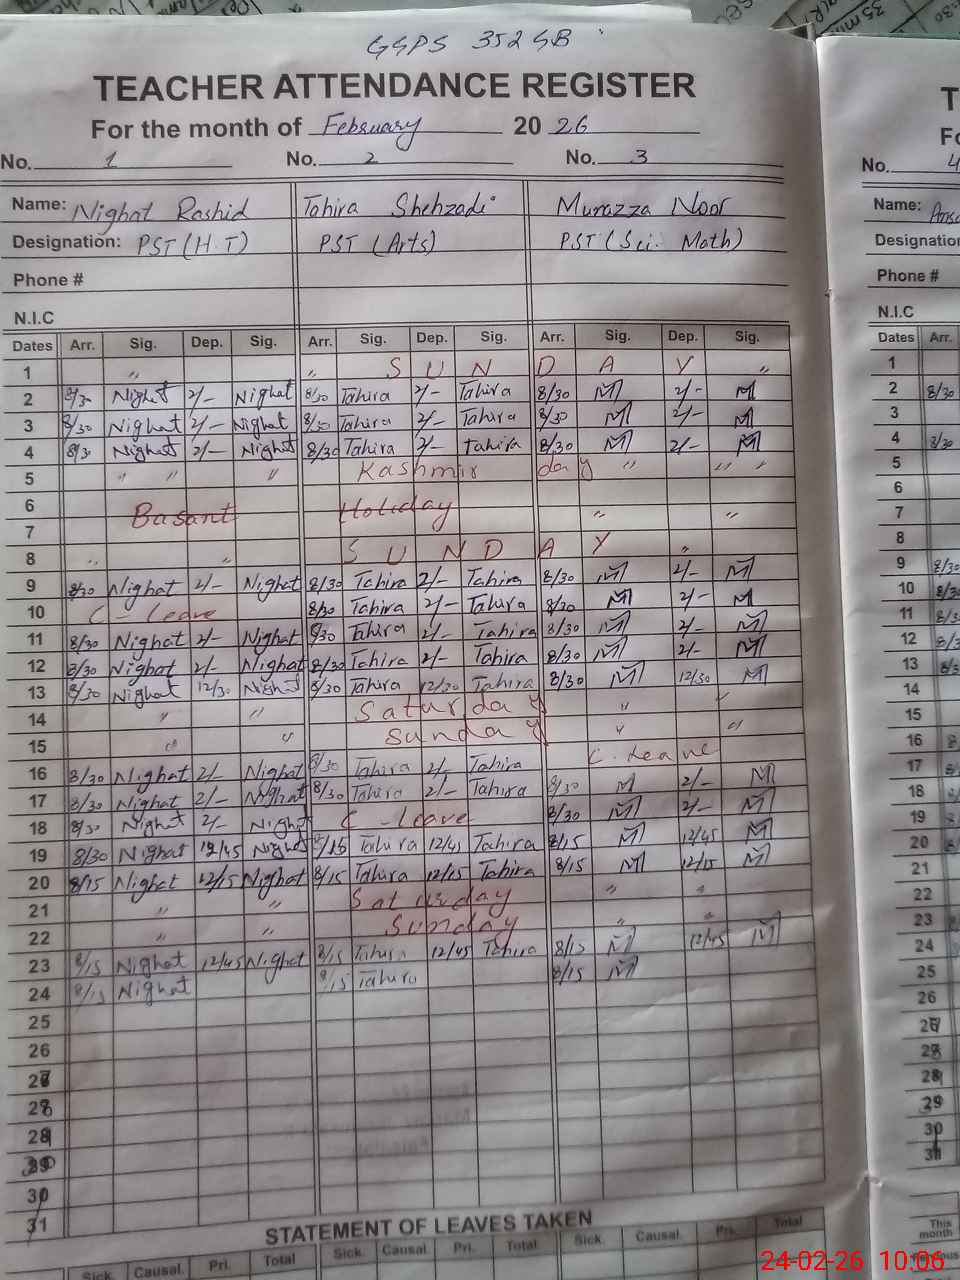 GGPS 352 GB
TEACHER ATTENDANCE REGISTER
For the month of February 20 26
No. 1 No. 2 No. 3
Name: Nighat Rashid Tahira Shehzadi Murazza Noor
Designation: PST (H.T) PST (Arts) PST (Sci. Math)
Phone #
N.I.C
Dates Arr. Sig. Dep. Sig. Arr. Sig. Dep. Sig. Arr. Sig. Dep. Sig.
1 " " SUNDAY "
2 8/30 Nighat 2/- Nighat 8/30 Tahira 2/- Tahira 8/30 M 2/- M
3 8/30 Nighat 2/- Nighat 8/30 Tahira 2/- Tahira 8/30 M 2/- M
4 8/30 Nighat 2/- Nighat 8/30 Tahira 2/- Tahira 8/30 M 2/- M
5 " " " Kashmir day " " "
6
Basant Holiday " "
7
8 " " SUNDAY "
9 8/30 Nighat 2/- Nighat 8/30 Tahira 2/- Tahira 8/30 M 2/- M
10 C - Leave 8/30 Tahira 2/- Tahira 8/30 M 2/- M
11 8/30 Nighat 2/- Nighat 8/30 Tahira 2/- Tahira 8/30 M 2/- M
12 8/30 Nighat 2/- Nighat 8/30 Tahira 2/- Tahira 8/30 M 2/- M
13 8/30 Nighat 12/30 Nighat 8/30 Tahira 12/30 Tahira 8/30 M 12/30 M
14 " " Saturday " "
15 " " Sunday " "
16 8/30 Nighat 2/- Nighat 8/30 Tahira 2/- Tahira C. Leave
17 8/30 Nighat 2/- Nighat 8/30 Tahira 2/- Tahira 8/30 M 2/- M
18 8/30 Nighat 2/- Nighat C - leave 8/30 M 2/- M
19 8/30 Nighat 12/45 Nighat 8/15 Tahira 12/45 Tahira 8/15 M 12/45 M
20 8/15 Nighat 12/15 Nighat 8/15 Tahira 12/15 Tahira 8/15 M 12/15 M
21 " " Saturday " "
22 " " Sunday " "
23 8/15 Nighat 12/45 Nighat 8/15 Tahira 12/45 Tahira 8/15 M 12/45 M
24 8/15 Nighat 8/15 Tahira 8/15 M
25
26
27
28
29
30
30
31
STATEMENT OF LEAVES TAKEN
Sick. Causal. Pri. Total Sick. Causal. Pri. Total Sick. Causal. Pri. Total
No. 4
Name:
Designation
Phone #
N.I.C
Dates Arr.
1
2 8/30
3
4 8/30
5
6
7
8
9 8/30
10
11
12
13
14
15
16
17
18
19
20
21
22
23
24
25
26
27
28
28
29
30
31
This month
24-02-26 10:06